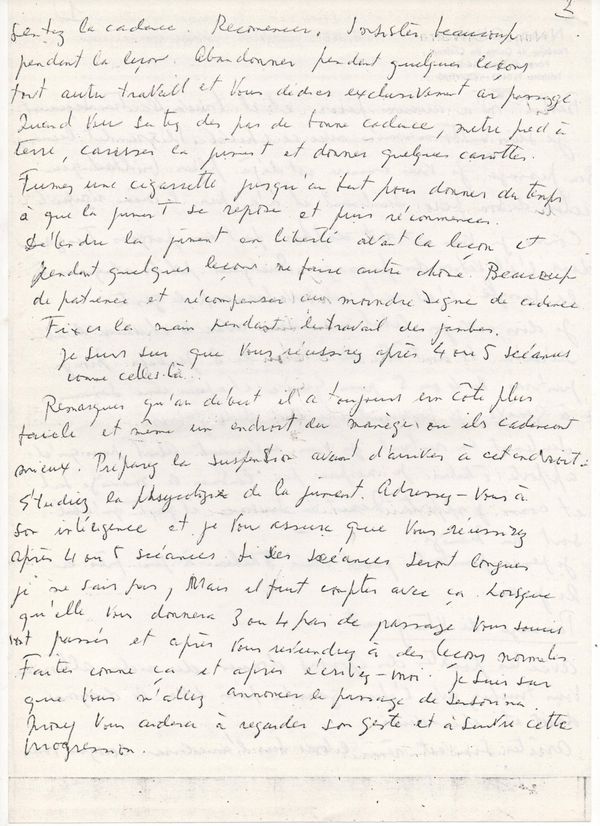 Sentez la cadence. Recomencer. Insister beaucoup
pendant la leçon. Abandonner pendant quelques leçons
tout autre travail et Vous dédier exclusivement au passage
Quand Vous sentez des pas de bonne cadence, metre pied à
terre, caresser la jument et donner quelques carottes.
Fumez une cigarrette jusqu'au bout pour donner du temps
à que la jument se repose et puis récommencer.
Détendre la jument en liberté avant la leçon et
pendant quelques leçons ne faire autre chose. Beaucoup
de patience et récompenser au moindre signe de cadence
Fixer la main pendant le travail des jambes.
Je suis sur que Vous réussirez après 4 ou 5 scéances
comme celles-là...
Remarquez qu'au début il a toujours un côte plus
facile et même un endroit du manège où ils cadencent
mieux. Préparez la suspenstion avant d'arriver à cet endroit.
Studiez la phsycologie de la jument. Adressez-Vous à
son intéligence et je Vous assure que Vous réussirez
après 4 ou 5 scéances. Si ses scéances seront longues
je ne sais pas, Mais il faut compter avec ça. Lorsque
qu'elle Vous donnera 3 ou 4 pas de passage Vos soucis
sont passés et après Vous reviendrez à des leçons normales
Faites comme ça et après écrivez-moi. Je suis sur
que Vous m'allez annoncer le passage de
Vous aidera à regarder son geste et à sentir cette
progression.